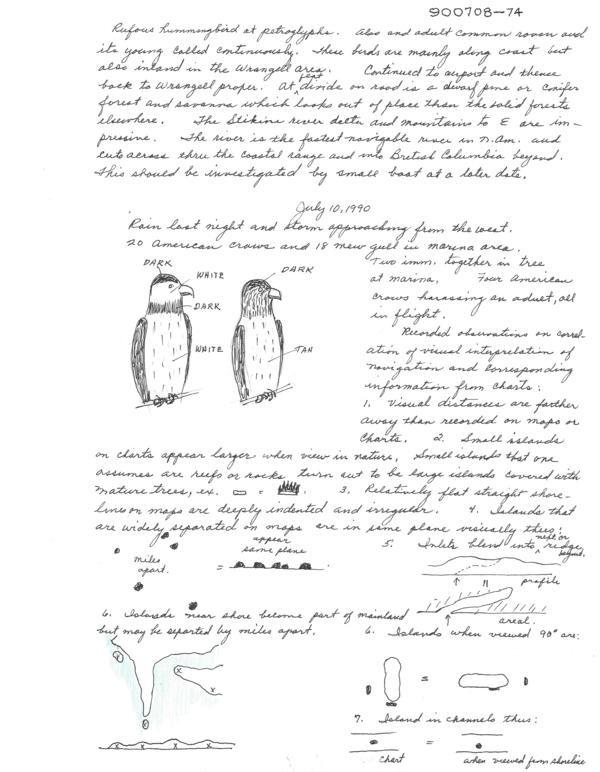 900708-74
Rufous hummingbird at petroglyphs. Also and adult common raven and
its young called continuously. These birds are mainly along coast but
also inland in the Wrangell area. Continued to airport and thence
back to Wrangell proper. At first divide on road is a dwarf pine or conifer
forest and savanna which looks out of place than the solid forests
elsewhere. The Stikine river delta and mountains to E are im-
pressive. The river is the fastest navigable river in N. Am. and
cuts across thru the coastal range and into British Columbia beyond.
This should be investigated by small boat at a later date.
July 10, 1990
Rain last night and storm approaching from the west.
20 American crows and 18 mew gull in marina area.
DARK
WHITE
DARK
WHITE
DARK
TAN
Two imm. together in tree
at marina. Four American
crows harassing an adult, all
in flight.
Recorded observations on correl-
ation of visual interpretation of
navigation and corresponding
information from charts:
1. Visual distances are farther
away than recorded on maps or
charts. 2. Small islands
on charts appear larger when view in nature. Small islands that one
assumes are reefs or rocks turn out to be large islands covered with
mature trees, ex. = . 3. Relatively flat straight shore-
lines on maps are deeply indented and irregular. 4. Islands that
are widely separated on maps are in same plane visually thus:
miles
apart.
=
appear
same plane
5. Inlets blend into next or ridge
beyond.
profile
areal
6. Islands near shore become part of mainland
but may be seperted by miles apart.
x
x
x
x
x x x x
6. Islands when viewed 90° are:
=
7. Island in channels thus:
=
chart
when viewed from shoreline